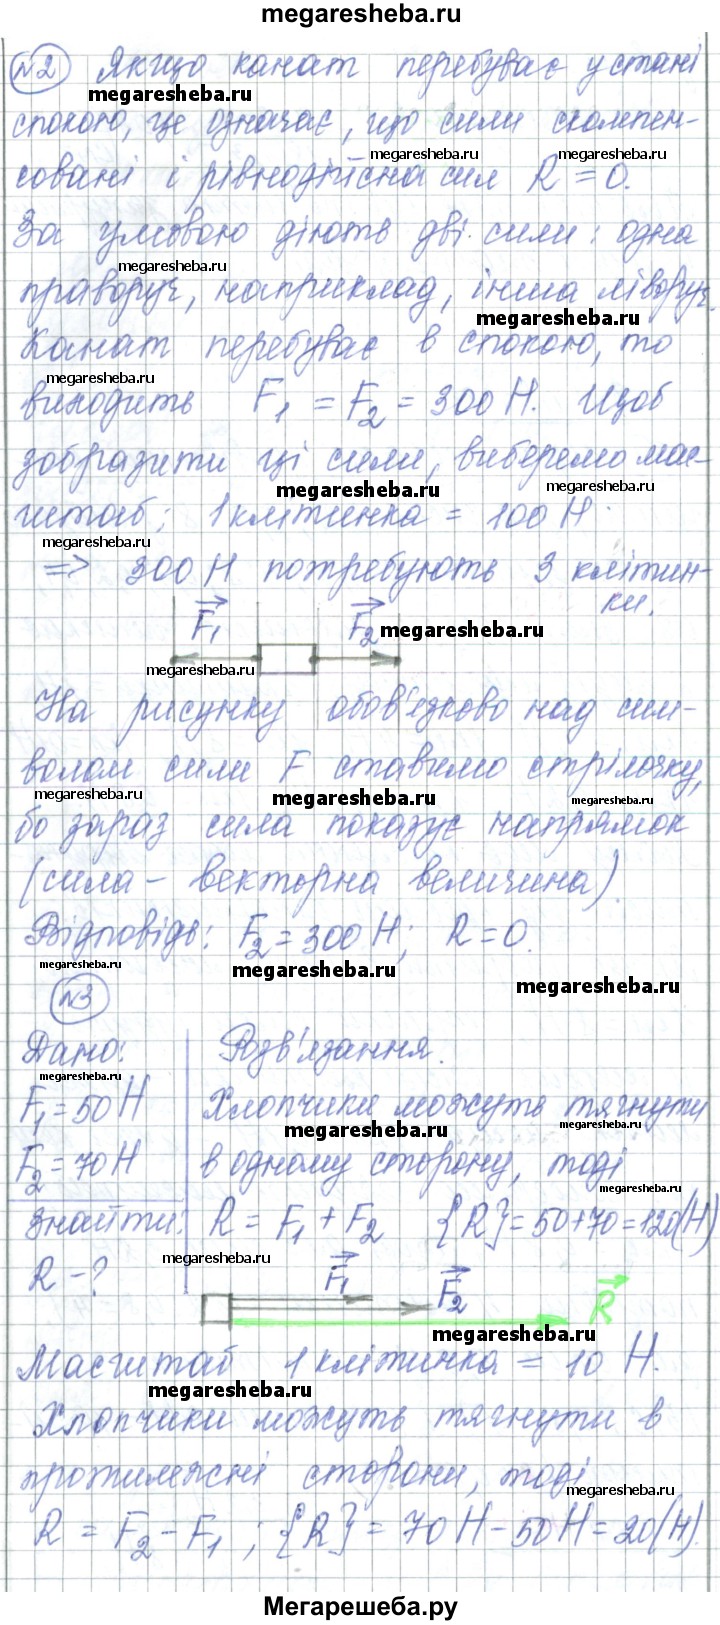 megaresheba.ru
№2 Якщо канат перебуває у стані
megaresheba.ru
спокою, це означає, що сили скомпен-
megaresheba.ru megaresheba.ru
совані і рівнодійсна сил R = 0.
За умовою діють дві сили: одна
megaresheba.ru
праворуч, наприклад, інша ліворуч.
megaresheba.ru
Канат перебуває в спокою, то
megaresheba.ru
виходить F1 = F2 = 300 Н. Щоб
зобразити ці сили, виберемо мас-
megaresheba.ru megaresheba.ru
штаб; 1 клітинка = 100 Н.
megaresheba.ru
=> 300 Н потребують 3 клітин-
ки.
F1 F2 megaresheba.ru
megaresheba.ru
На рисунку обов'язково над сим-
волом сили F ставимо стрілочку,
megaresheba.ru megaresheba.ru megaresheba.ru
бо зараз сила показує напрямок
(сила – векторна величина).
Відповідь: F2 = 300 Н; R = 0.
megaresheba.ru megaresheba.ru
megaresheba.ru
№3
Дано: Розв'язання.
megaresheba.ru
F1 = 50 Н Хлопчики можуть тягнути
megaresheba.ru megaresheba.ru
F2 = 70 Н в одному сторону, тоді
megaresheba.ru
Знайти: R = F1 + F2 {R} = 50+70 = 120(Н)
megaresheba.ru
R – ?
F1 F2 R
megaresheba.ru
Масштаб 1 клітинка = 10 Н.
megaresheba.ru
Хлопчики можуть тягнути в
протилежні сторони, тоді
megaresheba.ru
R = F2 – F1; {R} = 70 Н – 50 Н = 20(Н).
Мегарешеба.ру